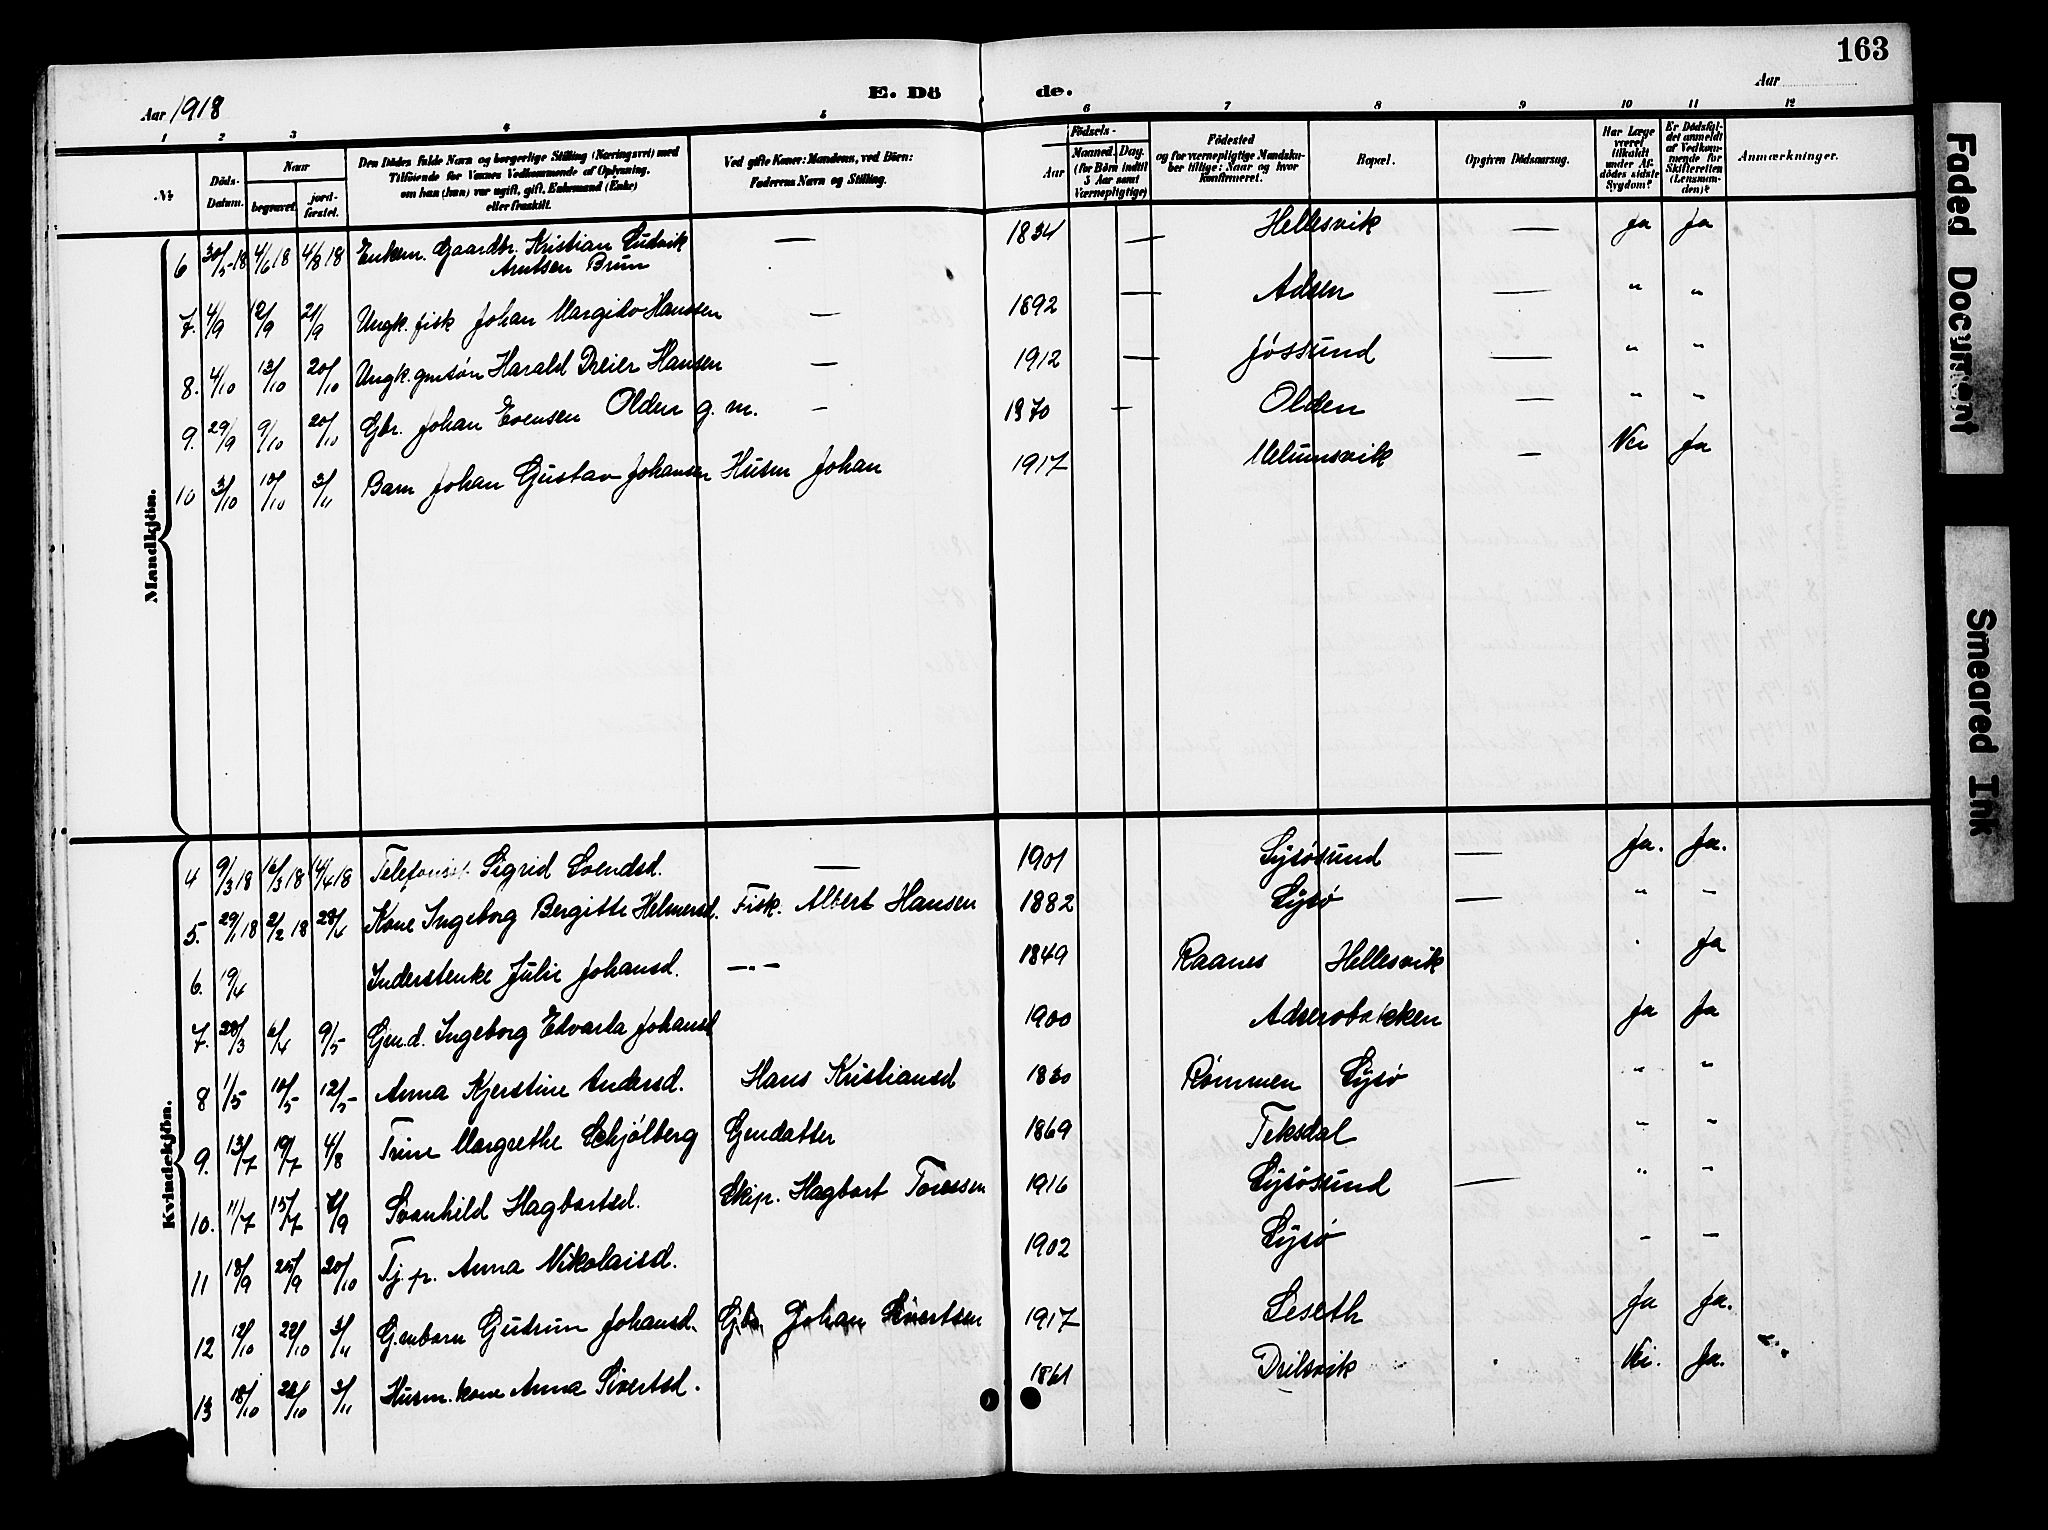 163
Aar 1918
E. Dö
de.
Aar
1 2 3 4 5 6 7 8 9 10 11 12
№
Döds-Datum.
Naar
begravet.
jord-fæstet.
Den Dödes fulde Navn og borgerlige Stilling (Næringsvei) med
Tilföiende for Voxnes Vedkommende af Oplysning,
om han (hun) var ugift, gift, Enkemand (Enke)
eller fraskilt.
Ved gifte Koner: Mandens, ved Börn:
Faderens Navn og Stilling.
Födsels-
Aar
Maaned. Dag.
(for Börn indtil
5 Aar samt
Værnepligtige)
Födested
og for værnepligtige Mandskaber tillige: Naar og hvor
konfirmeret.
Bopæl.
Opgiven Dödsaarsag.
Har Læge
været
tilkaldt
under Af-
dödes sidste
Sygdom?
Er Dödsfal-
det anmeldt
af Vedkom-
mende for
Skifteretten
(Lensman-
den)?
Anmærkninger.
Mandkjön.
6 30/5-18 4/6 18 4/8 18 Enkem. Gaardbr. Kristian Ludvik — 1834 — Hellesvik — Ja Ja
Arntsen Brun
7. 4/9 12/9 21/9 Ungk. fisk Johan Margido Hanssen — 1892 — Adsen — " "
8. 4/10 13/10 20/10 Ungk. gmsön Harald Dreier Hansen — 1912 — Jøssund — " "
9. 29/9 9/10 20/10 Gbr. Johan Evensen Olden g. m. — 1870 — Olden — " "
10 3/10 10/10 3/11 Barn Johan Gustav Johansen Husm Johan 1917 Melumsvik — Nei Ja
Kvindekjön.
4 9/3 18 16/3 18 14/4 18 Telefonist. Sigrid Svendsd. — 1901 Lysøsund — Ja. Ja.
5. 29/1 18 2/2 18 28/4 Kone Ingeborg Bergitte Helmersd. Fisk. Albert Hansen 1882 Lysø — " -
6. 19/4 Inderstenke Julie Johansd. —.— 1849 Raanes Hellesvik Ja
7. 28/3 6/4 9/5 Gm.d. Ingeborg Edvarda Johansd 1900 Adserobakken Ja Ja
8 1/5 10/5 12/5 Anna Kjerstine Andersd. Hans Kristiansd 1830 Rømmen Lysø " "
9. 13/7 19/7 4/8 Trine Margrethe Schjølberg Gmdatter 1869 Teksdal " "
10. 11/7 15/7 /9 Svanhild Hagbartsd. Skip. Hagbart Toressen 1916 Lysøsund — " "
11 18/9 25/9 20/10 Tj. p. Anna Nikolaisd. 1902 Lysø - —
12 12/10 22/10 3/11 Gmbarn Gudrun Johansd. Gbr. Johan Sivertsen 1917 Leseth Ja Ja.
13 18/10 28/10 3/11 Husm. kone Anna Sivertsd. 1861 Drilsvik Nei. Ja.
Faded Document
Smeared Ink